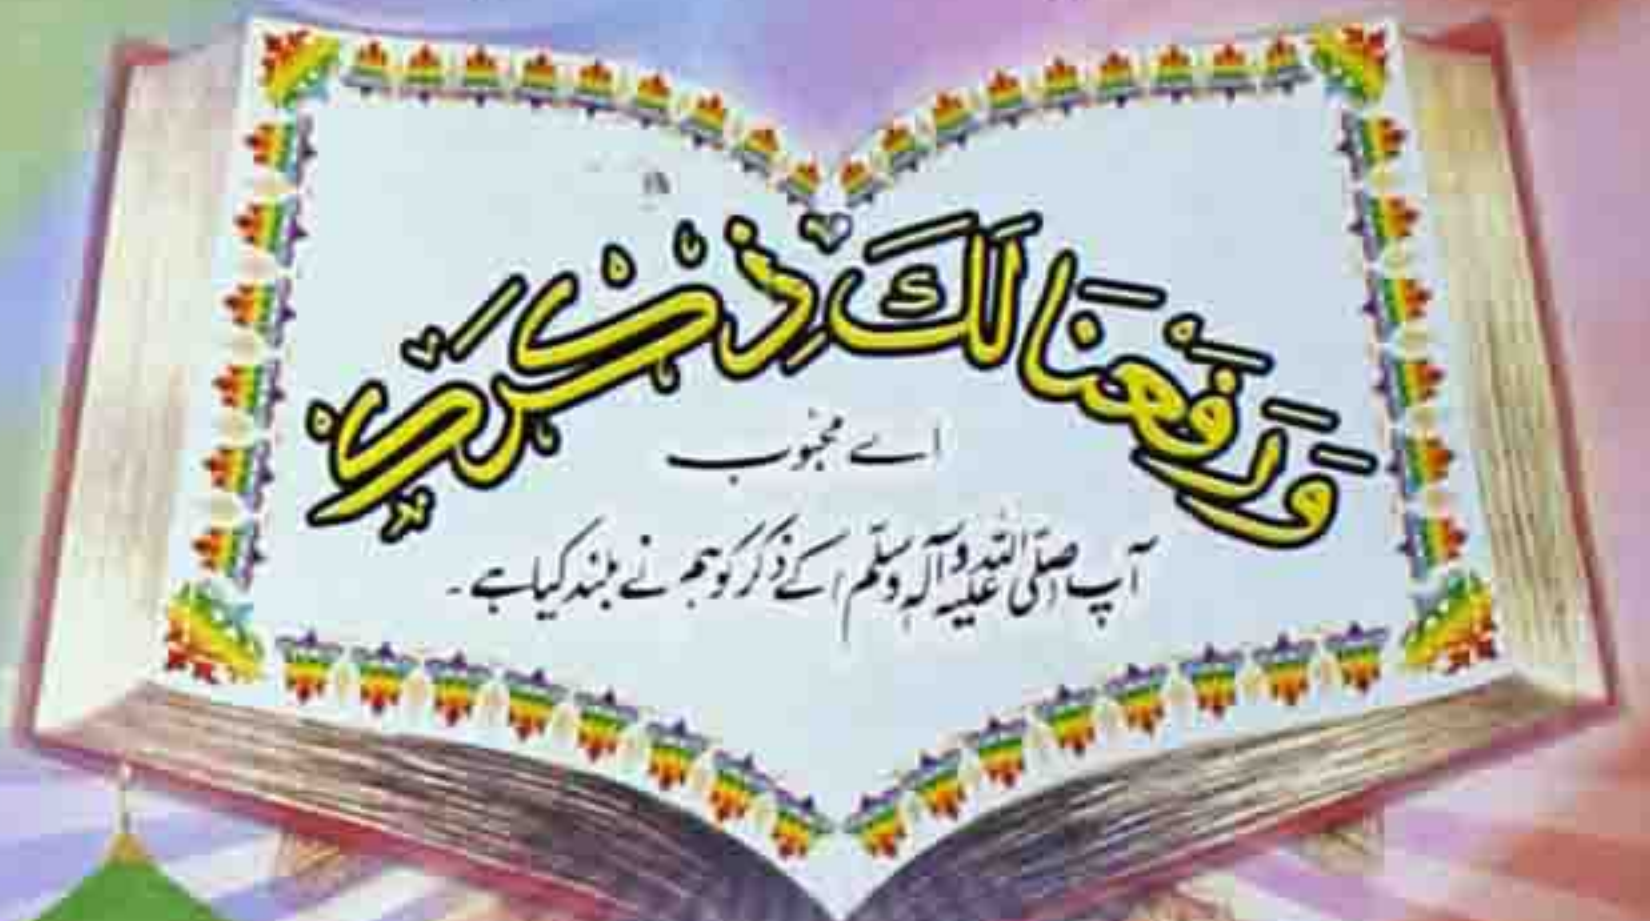 وَرَفَعْنَا لَكَ ذِكْرَكَ
اے محبوب
آپ صلّی اللہ علیہ وآلہ وسلّم کے ذکر کو ہم نے بلند کیا ہے۔